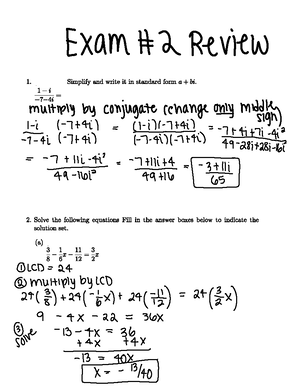 Exam #2 Review
1. Simplify and write it in standard form a + bi.
(1-i)/(-7-4i) =
multiply by conjugate (change only middle sign)
(1-i)/(-7-4i) (-7+4i)/(-7+4i) = (1-i)(-7+4i)/(-7-4i)(-7+4i) = (-7+4i+7i-4i²)/(49-28i+28i-16i²)
= (-7+11i-4i²)/(49-16i²) = (-7+11i+4)/(49+16) = (-3+11i)/65
2. Solve the following equations Fill in the answer boxes below to indicate the
solution set.
(a)
3/8 - 1/6 x - 11/12 = 3/2 x
① LCD = 24
② multiply by LCD
24(3/8) + 24(-1/6 x) + 24(-11/12) = 24(3/2 x)
9 - 4x - 22 = 36x
③ solve
-13 - 4x = 36
+4x +4x
-13 = 40x
x = -13/40